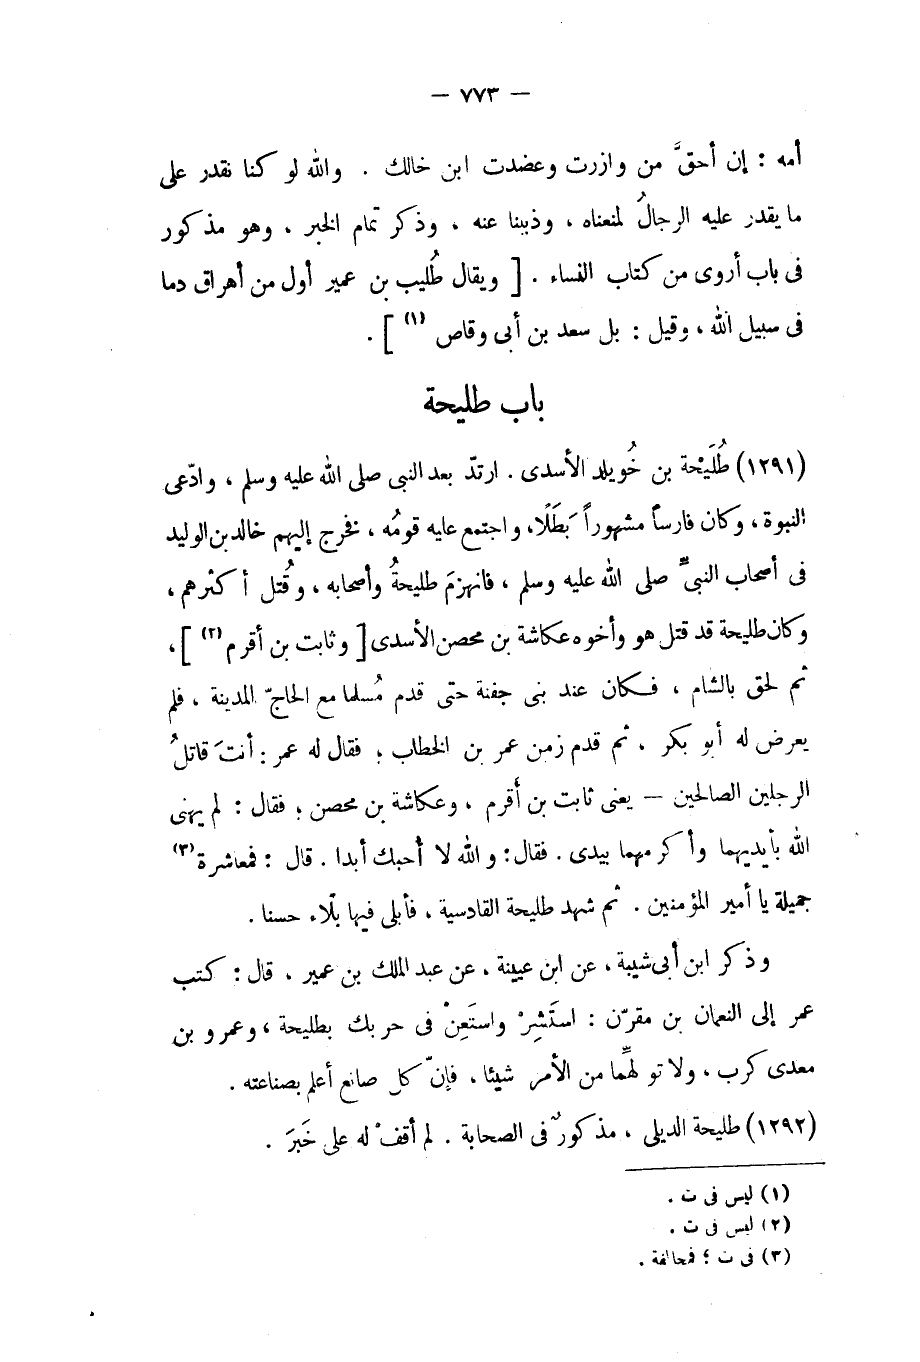 — ٧٧٣ —
أمه : إن أحقَّ من وازرت وعضدت ابن خالك . والله لو كنا نقدر على
ما يقدر عليه الرجالُ لمنعناه ، وذببنا عنه ، وذكر تمام الخبر ، وهو مذكور
فى باب أروى من كتاب النساء . [ ويقال طُليب بن عمير أول من أهراق دما
فى سبيل الله ، وقيل : بل سعد بن أبى وقاص (١) ] .
باب طليحة
(١٢٩١) طُلَيْحة بن خُويلد الأسدى . ارتدّ بعد النبى صلى الله عليه وسلم ، وادّعى
النبوة ، وكان فارساً مشهوراً بَطَلًا ، واجتمع عليه قومُه ، فخرج إليهم خالد بن الوليد
فى أصحاب النبىّ صلى الله عليه وسلم ، فانهزمَ طليحةُ وأصحابه ، وقُتل أكثرهم ،
وكان طليحة قد قتل هو وأخوه عكاشة بن محصن الأسدى [ وثابت بن أقرم (٢) ] ،
ثم لحق بالشام ، فكان عند بنى جفنة حتى قدم مُسلما مع الحاجّ المدينة ، فلم
يعرض له أبو بكر . ثم قدم زمن عمر بن الخطاب ؛ فقال له عمر : أنتَ قاتلُ
الرجلين الصالحين — يعنى ثابت بن أقرم ، وعكاشة بن محصن ؛ فقال : لم يهنى
الله بأيديهما وأكرمهما بيدى . فقال : والله لا أحبك أبدا . قال : فمعاشرة (٣)
جميلة يا أمير المؤمنين . ثم شهد طليحة القادسية ، فأبلى فيها بلَاء حسنا .
وذكر ابن أبى شيبة ، عن ابن عيينة ، عن عبد الملك بن عمير ، قال : كتب
عمر إلى النعمان بن مقرّن : استَشِرْ واستَعِنْ فى حربك بطليحة ، وعمرو بن
معدى كرب ، ولا تولِّهما من الأمر شيئا ، فإنّ كل صانع أعلم بصناعته .
(١٢٩٢) طليحة الديلى ، مذكورٌ فى الصحابة . لم أقفْ له على خَبَرَ .
(١) ليس فى ت .
(٢) ليس فى ت .
(٣) فى ت ؛ فمحالفة .